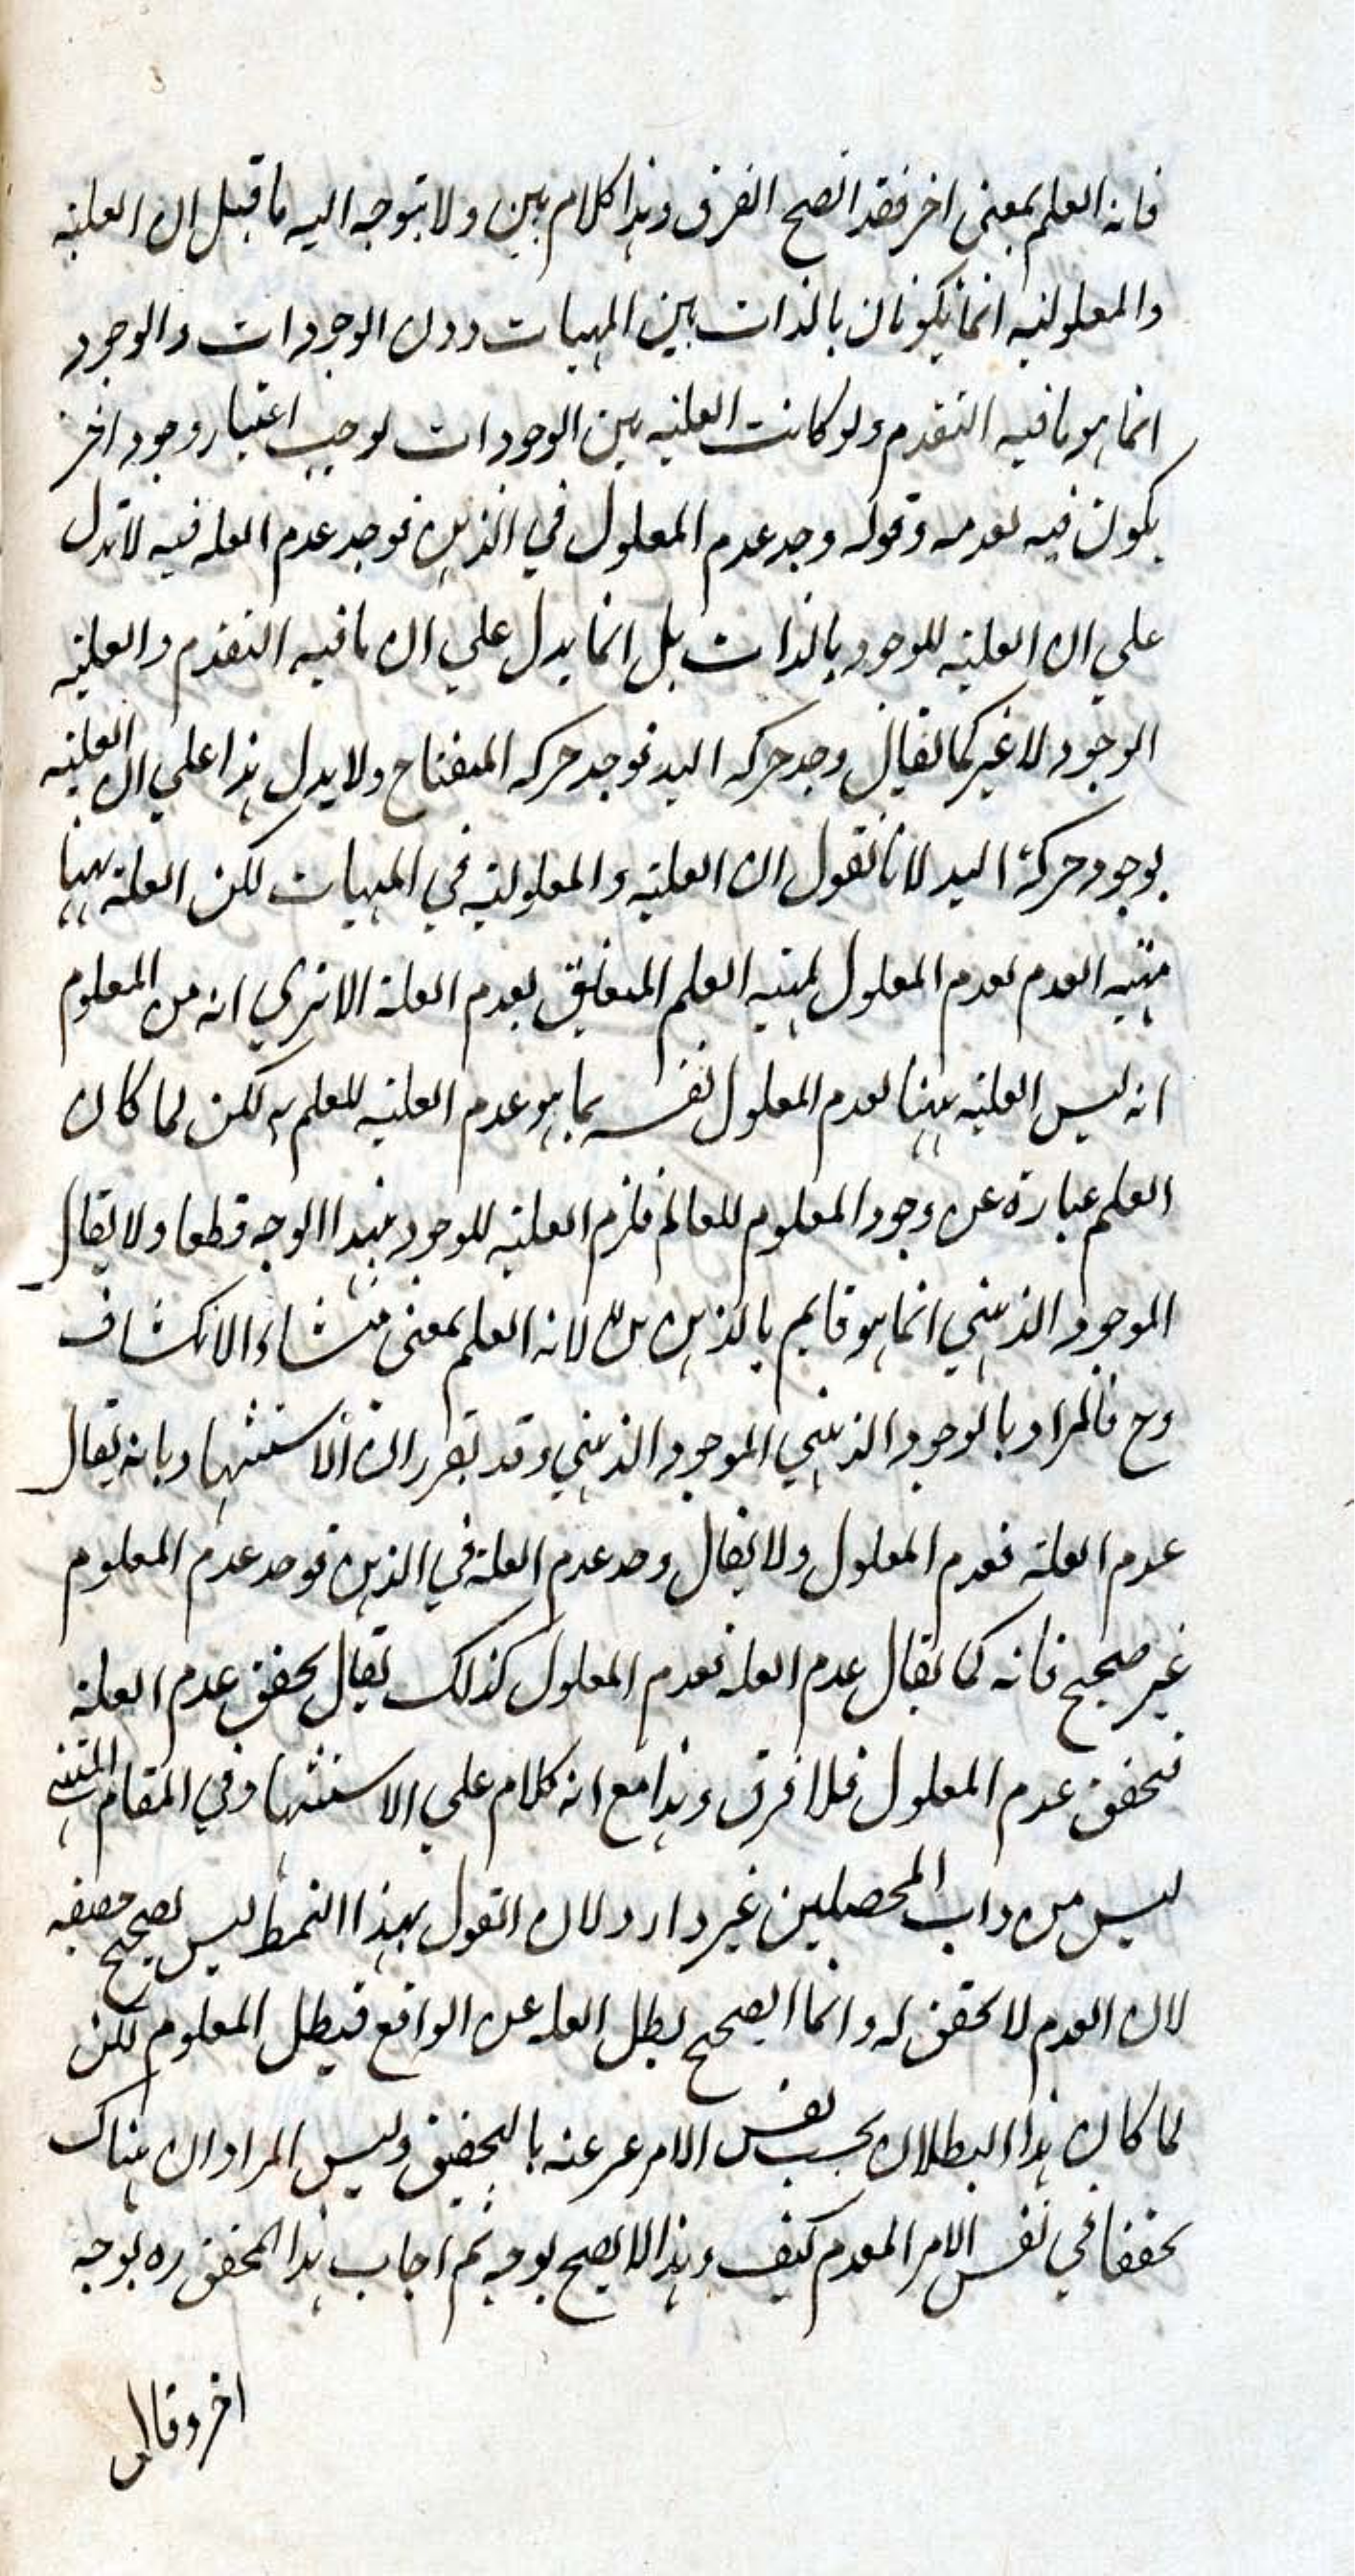 فانه العلم بمعنى اخر فقد اتضح الفرق وهذا كلام بين ولا يتوجه اليه ما قيل ان العلية
والمعلولية انما يكونان بالذات بين المهيات دون الوجودات والوجود
انما هو ما فيه التقدم ولو كانت العلية بين الوجودات لوجب اعتبار وجود اخر
يكون فيه تقدمه وقوله وجد عدم المعلول في الذهن فوجد عدم العله فيه لا تدل
علي ان العلية للوجود بالذات بل انما يدل علي ان ما فيه التقدم والعلية
الوجود لا غير كما يقال وجد حركه اليد فوجد حركه المفتاح ولا يدل هذا علي ان العلية
بوجود حركة اليد لانا نقول ان العلية والمعلولية في المهيات لكن العلة ههنا
مهيه العدم لعدم المعلول لمهيه العلم المتعلق بعدم العلة الا تري انه من المعلوم
انه ليس العلية ههنا لعدم المعلول نفسه بما هو عدم العلية للعلم به لكن لما كان
العلم عبارة عن وجود المعلوم للعالم فلزم العلية للوجود بهذا الوجه قطعا ولا يقال
الموجود الذهني انما هو قايم بالذهن لانه العلم بمعنى منشاء الانكشاف
وح فالمراد بالوجود الذهني الموجود الذهني وقد تقرر ان الاستشهاد بانه يقال
عدم العلة فعدم المعلول ولا يقال وجد عدم العلة في الذهن فوجد عدم المعلوم
غير صحيح فانه كما يقال عدم العلة فعدم المعلول كذلك يقال تحقق عدم العلة
فتحقق عدم المعلول فلا فرق وهذا مع انه كلام علي الاستشهاد وفي المقام
ليس من داب المحصلين غير وارد لان القول بهذا النمط ليس بصحيح حقيقه
لان العدم لا تحقق له وانما الصحيح بطل العله عن الواقع فبطل المعلوم لكن
لما كان هذا البطلان بحسب نفس الامر عبر عنه بالتحقيق وليس المراد ان هناك
تحققا في نفس الامر المعدم كيف وهذا لا يصح بوجه ثم اجاب هذا المحقق ره بوجه
اخر وقال